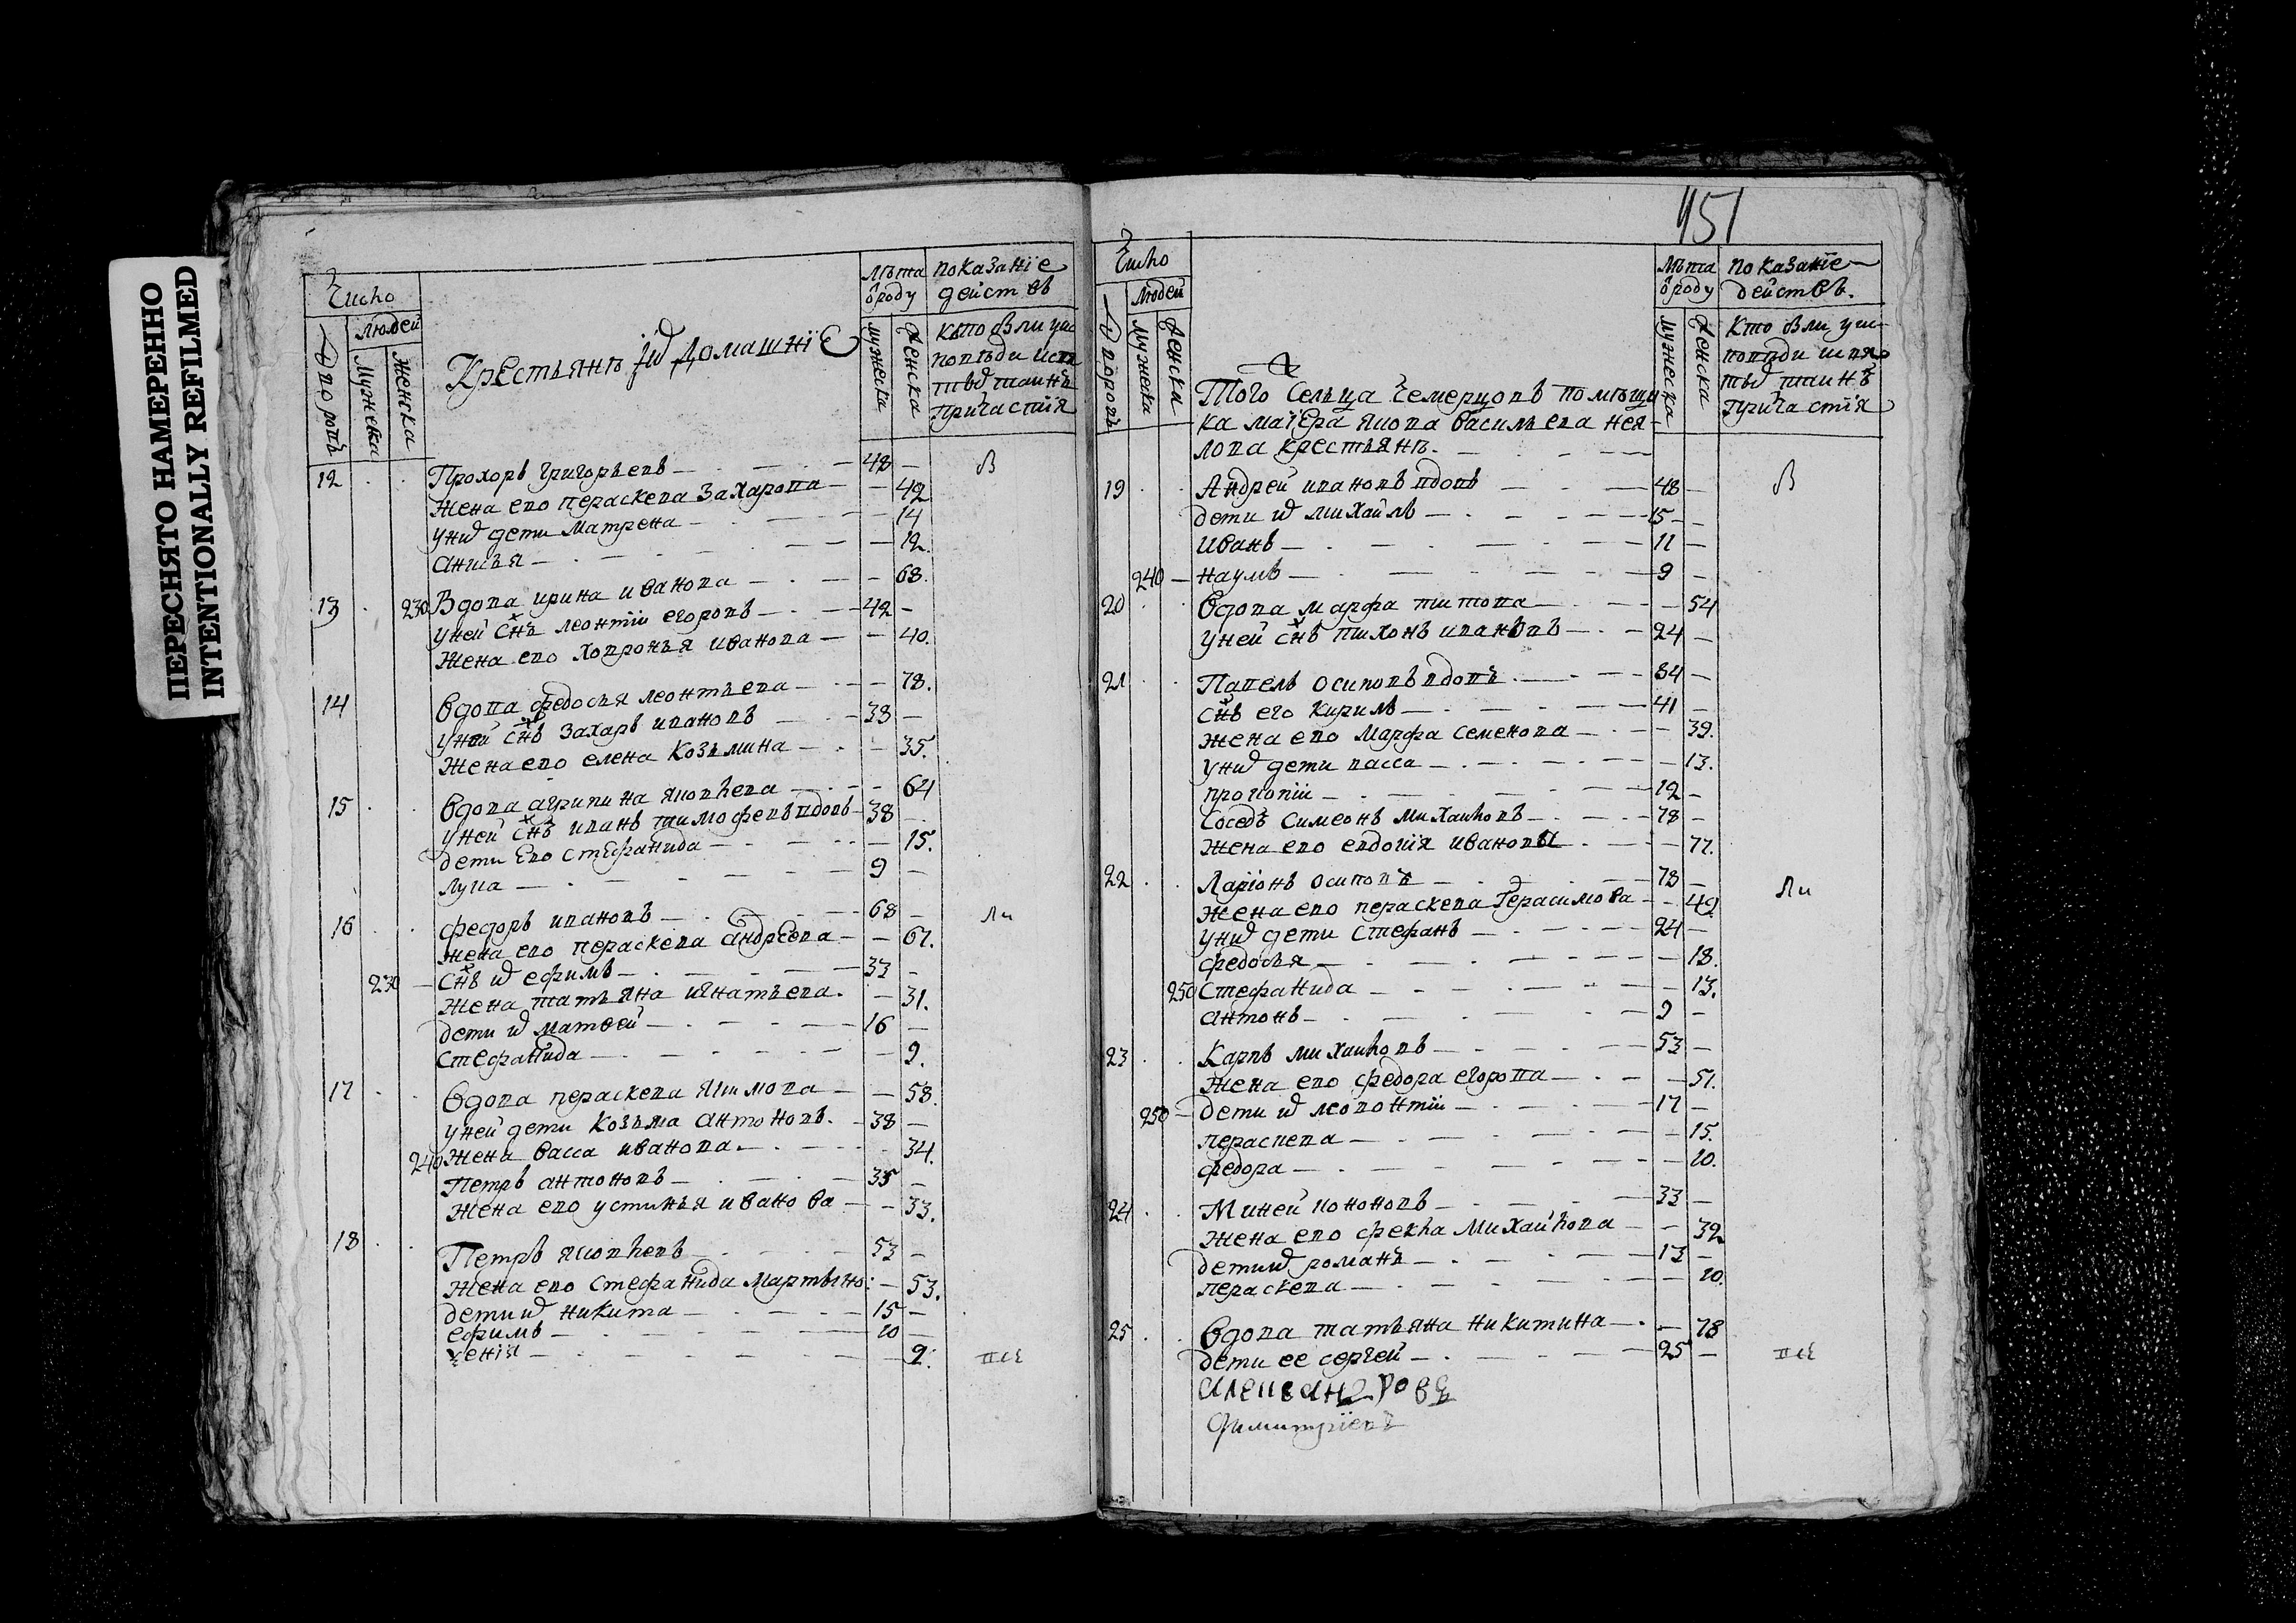 ПЕРЕСНЯТО НАМЕРЕННО
INTENTIONALLY REFILMED
Число
Людей
Дворовъ
Мужеска
Женска
Крестьянъ и домашние
Лѣта
от роду
мужеска
женска
показанїе
действъ
кто были у ис
поведи и с
тых таинъ
причастїя
12
Прохоръ григорьевъ 48
в
жена ево параскева захарова 42
у них дети матрена 14
анисья 12.
13
230
Вдова ирина иванова 68.
у ней сн҃ъ леонтiи егоровъ 42
жена ево ховронья иванова 40.
14
вдова федосья леонтьева 78.
у ней сн҃ъ захаръ ивановъ 38
жена ево елена козьмина 35.
15
вдова агрипина яковлева 64
у ней сн҃ъ иванъ тимофеевъ вдовъ 38
дети ево стефанида 15.
лука 9
16
федоръ ивановъ 68
ли
жена ево параскева андреева 67.
230
сн҃ъ их ефимъ 33
жена татьяна игнатьева. 31.
дети их матвей 16
стефанида 9.
17
вдова параскева якимова 58.
у ней дети козьма антоновъ. 38
240
жена васса иванова. 34.
петръ антоновъ 35
жена ево устинья иванова 33.
18
Петръ яковлевъ 53
жена ево стефанида мартыно: 53.
дети их никита 15
ефимъ 10
ксенiя 2.
151
Число
Людей
Дворовъ
Мужеска
Женска
Лѣта
от роду
мужеска
женска
показанїе
действъ.
кто были у ис
поведи и свя
тых таинъ
причастїя
Того сельца чемерцовъ помѣщи
ка маiера якова васильева нея
лова крестьянъ.
19
Андрей ивановъ вдовъ 48
в
дети их михайлъ 15
иванъ 11
240
наумъ 9
20
вдова марфа титова 54
у ней сн҃ъ тихонъ ивановъ 24
21
Павелъ осиповъ вдовъ 84
сн҃ъ его кирилъ 41
жена ево марфа семенова 39.
у них дети васса 13.
прокопiи 12
соседъ симеонъ михаиловъ 78
жена ево евдокiя иванова 77.
22
Ларiонъ осиповъ 78
ли
жена ево параскева герасимова 49
у них дети стефанъ 24
федосья 18.
250
стефанида 13.
антонъ 9
23
Карпъ михаиловъ 53
жена ево федора егорова 51.
250
дети их леонтiи 17
параскева 15.
федора 10.
24
Миней кононовъ 33
жена ево фекла михаилова 32
дети их романъ 13
параскева 10.
25
вдова татьяна никитина 78
дети ее сергей 25
александровъ
димитрiевъ